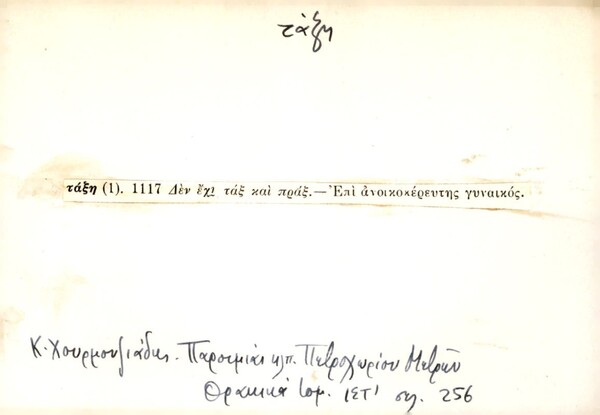 τάξη
τάξη (1). 1117 Δὲν ἔχι τάξ καὶ πράξ.—Ἐπὶ ἀνοικοκέρευτης γυναικός.
Κ. Χουρμουζιάδης. Παροιμίαι κλπ. Πετροχωρίου Μετρῶν
Θρακικά τομ. ΙΣΤ' σελ. 256